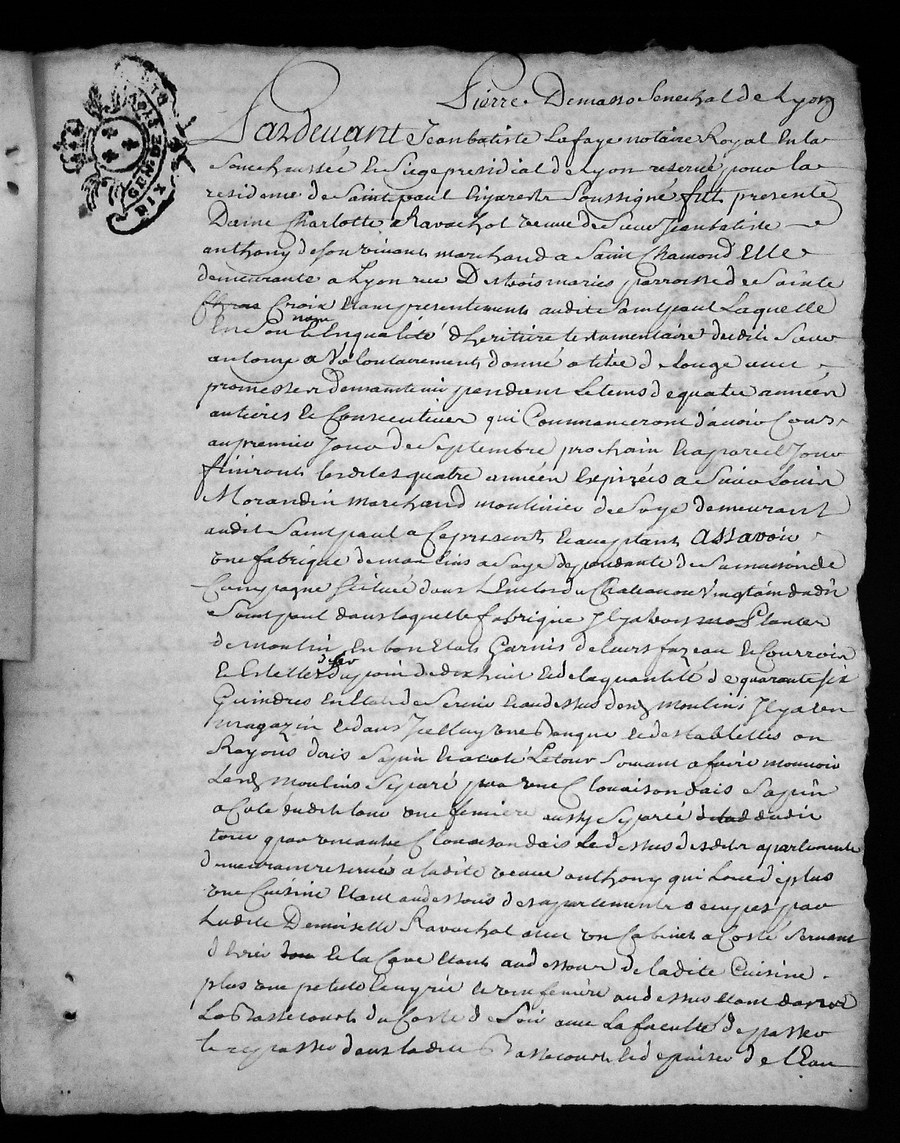 GEN. DE LYON
DIX
Pierre Demasso Senechal de Lyon
Pardevant Jean batiste Lafaye notaire Royal En la
Senechaussée Et Siege presidial de Lyon reservé pour la
residence de Saint paul En jarest Soussigné fut presente
Dame Charlotte Ravachol veuve de Sieur Jean batiste
anthony de son vivant marchand a Saint Chamond Elle
demeurante a Lyon rue Des trois maries parroisse de Sainte
Croix Etant presentement audit Saint paul Laquelle
En Son nom Et En qualité d'heritiere testamentaire dudit Sieur
antoine a volontairement donné a titre de Louage avec
promesse de maintenir pendent Le tems de quatre années
antieres Et Consecutives qui Commanceront d'avoir Cours
au premier Jour de Septembre prochain Et a pareil Jour
finiront lesdites quatre années Expirées a Sieur Louis
Morandin marchand moulinier de Soye demeurant
audit Saint paul a Ce present Et acceptant assavoir
une fabrique de moulins a Soye dependante de Sa maison de
Campagne Scituée dans L'enclos du Chateau vingtain dudit
Saint paul dans laquelle fabrique Il y a trois Plantes
de moulin En bon Etat Garnis de leurs fuzeau Et Courroix
Et de la quantité de quarante six
Guindres En Etat de Servir Et au dessus desd moulins Il y a un
magazin Et dans Icelluy une Banque Et des tablettes ou
Rayons d'ais Sapin Et a coté Le tour Servant a faire mouvoir
Lesd moulins Separé par une Clouaison d'ais Sapin
a Coté dudit tour une feniere aussy Separée dudit
tour par une autre Clouaison d'ais le dessus desdits apartements
demeurant reservés a ladite veuve anthony qui Loue de plus
une Cuisine Etant au dessous des apartements occupés par
Ladite Demoiselle Ravachol avec un Cabinet a Costé Servant
d'Evier Et la Cave Etant au dessous de ladite Cuisine
plus une petite Ecuyrie Et une feniere au dessus Etant dans
La Bassecourt du Costé de Soir avec La faculté de passer
Et repasser dans ladite Bassecourt Et de puiser de l'Eau